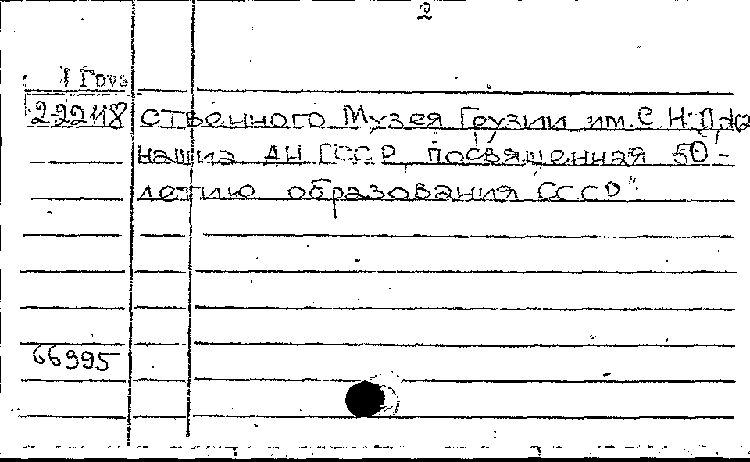 2
1 Груз
2-22118 ственного Музея Грузии им. С. Н. Джа
нашиа АН ГССР, посвященная 50-
летию образования СССР"
66995